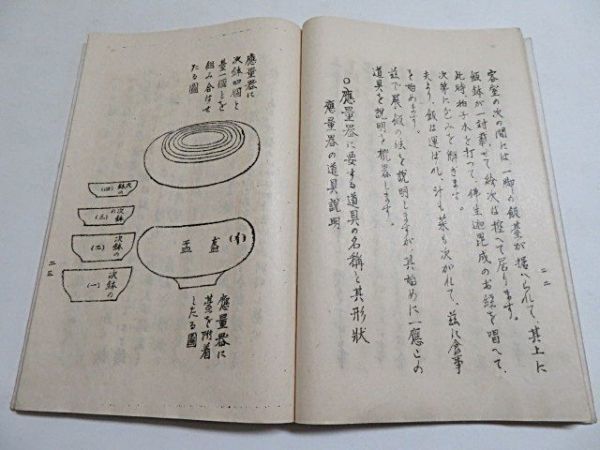 客室の次の間には一脚の飯臺が据へられて、其上に
飯鉢が一封載せて給次は控へて居ります。
此時、拍子木を打つて、佛生迦毘成のお経を唱へて、
次第に包みを解きます。
夫より、飯は運ばれ、汁も菜も次がれて、茲に食事
を始めます。
茲で展鉢の法を説明しますが其始めに一應この
道具を説明し置きます。
○應量器に要する道具の名稱と其形狀
應量器の道具説明
二二
應量器に
次鉢四個と
臺一個とを
組み合はせ
たる圖
次鉢の(四)
次鉢の(三)
次鉢の(二)
次鉢の(一)
應量器に
臺を附着
したる圖
二三